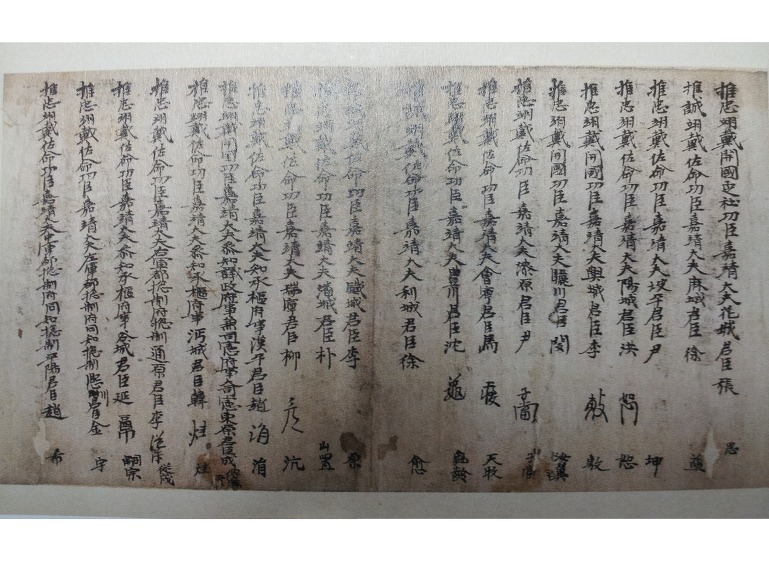 推忠翊戴開國定社功臣嘉靖大夫花城君臣張 思
推誠翊戴佐命功臣嘉靖大夫麻城君臣徐 益
推忠翊戴佐命功臣嘉靖大夫坡平君臣尹 坤
推忠翊戴佐命功臣嘉靖大夫陽城君臣洪 恕 恕
推忠翊戴開國功臣嘉靖大夫興城君臣李 敷 敷
推忠翊戴開國功臣嘉靖大夫驪川君臣閔 汝翼
推忠翊戴佐命功臣嘉靖大夫漆原君臣尹 子當
推忠翊戴佐命功臣嘉靖大夫會寧君臣馬 天牧
翊戴佐命功臣嘉靖大夫豊川君臣沈 龜齡
翊戴佐命功臣嘉靖大夫利城君臣徐 愈
翊戴佐命功臣嘉靖大夫城君臣李
翊戴佐命功臣嘉靖大夫城君臣朴
推忠翊戴佐命功臣嘉靖大夫瑞寧君臣柳
推忠翊戴佐命功臣嘉靖大夫知承樞府事漢平君臣趙 涓 涓
推忠翊戴開國功臣嘉靖大夫參知議政府事兼司憲府大司憲東原君臣咸
推忠翊戴佐命功臣嘉靖大夫參知承樞府事沔城君臣韓 珪 珪
推忠翊戴佐命功臣嘉靖大夫右軍都摠制府摠制通原君臣李 從茂
推忠翊戴佐命功臣嘉靖大夫參知承樞府事谷城君臣延 嗣宗
推忠翊戴佐命功臣嘉靖大夫左軍都摠制府同知摠制君臣金 宇
推忠翊戴佐命功臣嘉靖大夫中軍都摠制府同知摠制平陽君臣趙 希